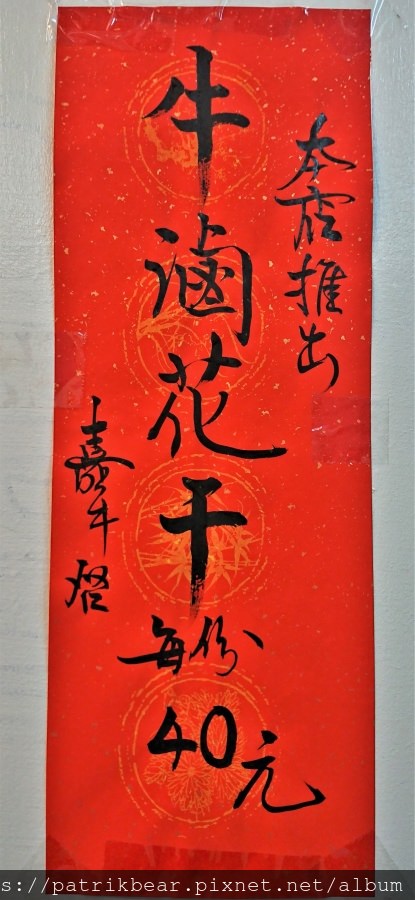 本店推出
牛滷花干
每份
40元
犇 啓
s://patrikbear.pixnet.net/album